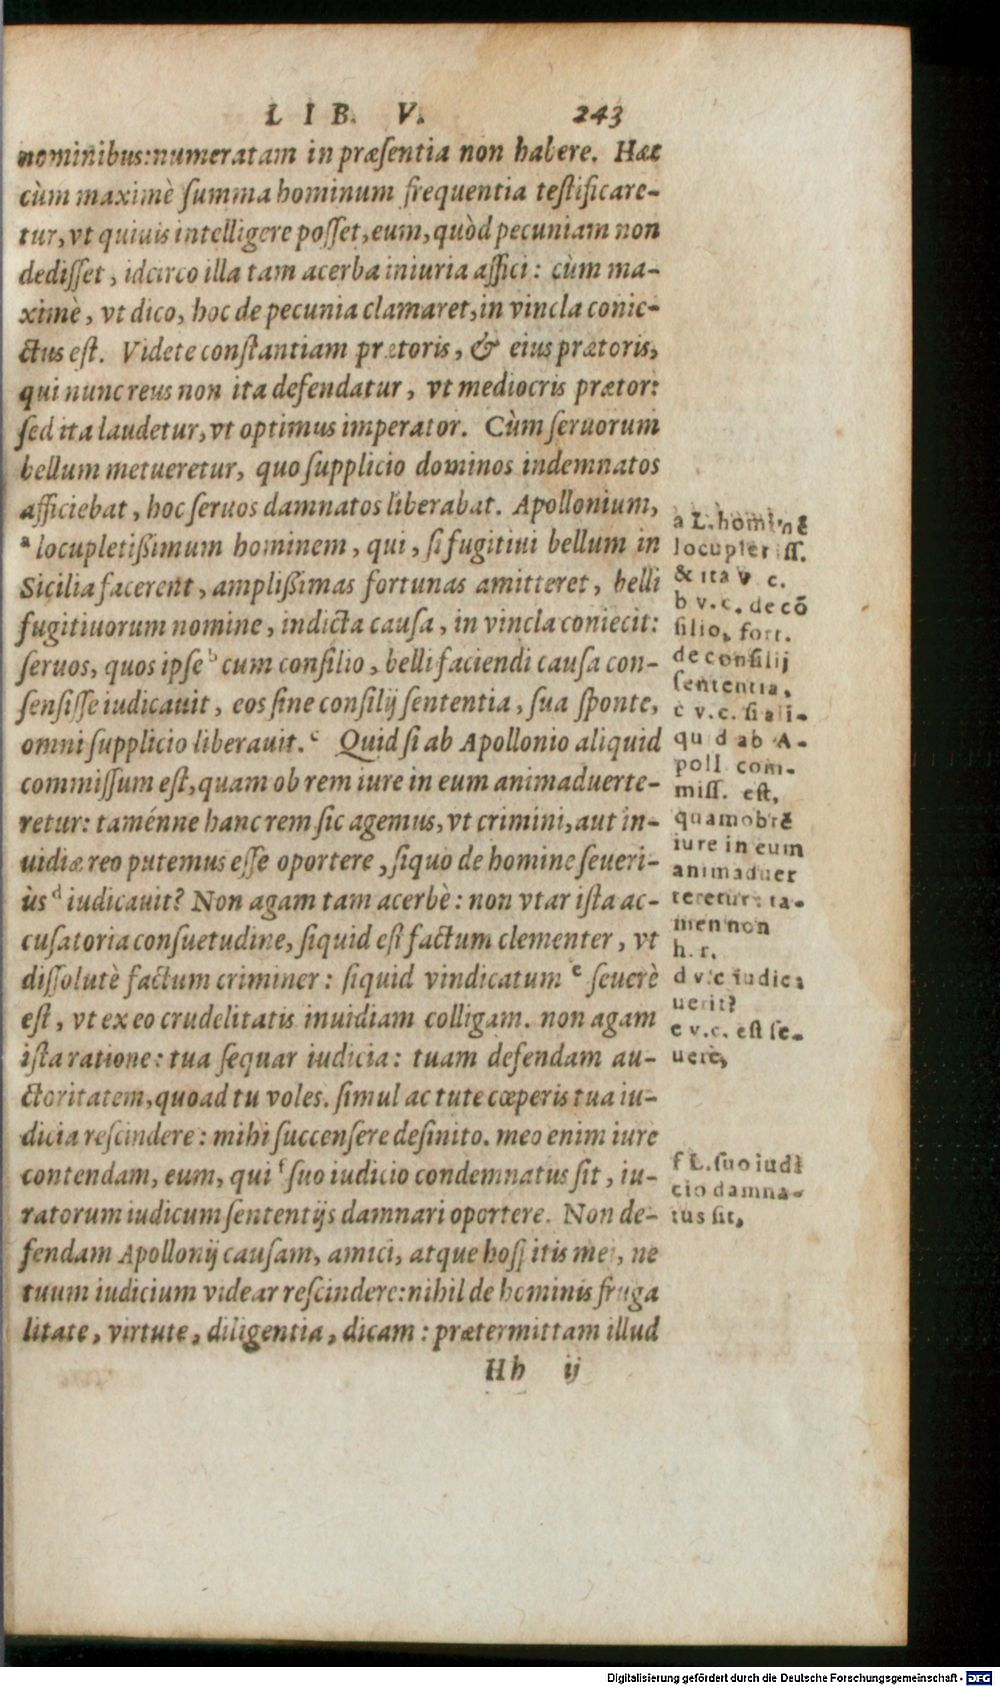 LIB. V. 243
nominibus: numeratam in præsentia non habere. Hæc
cùm maximè summa hominum frequentia testificare-
tur, vt quiuis intelligere posset, eum, quòd pecuniam non
dedisset, idcirco illa tam acerba iniuria affici: cùm ma-
ximè, vt dico, hoc de pecunia clamaret, in vincla conie-
ctus est. Videte constantiam prætoris, & eius prætoris,
qui nunc reus non ita defendatur, vt mediocris prætor:
sed ita laudetur, vt optimus imperator. Cùm seruorum
bellum metueretur, quo supplicio dominos indemnatos
afficiebat, hoc seruos damnatos liberabat. Apollonium,
a locupletißimum hominem, qui, si fugitiui bellum in
Sicilia facerent, amplißimas fortunas amitteret, belli
fugitiuorum nomine, indicta causa, in vincla coniecit:
seruos, quos ipse b cum consilio, belli faciendi causa con-
sensisse iudicauit, eos sine consilij sententia, sua sponte,
omni supplicio liberauit. c Quid si ab Apollonio aliquid
commissum est, quam ob rem iure in eum animaduerte-
retur: taménne hanc rem sic agemus, vt crimini, aut in-
uidiæ reo putemus esse oportere, siquo de homine seueri-
ùs d iudicauit? Non agam tam acerbè: non vtar ista ac-
cusatoria consuetudine, siquid est factum clementer, vt
dissolutè factum criminer: siquid vindicatum e seuerè
est, vt ex eo crudelitatis inuidiam colligam. non agam
ista ratione: tua sequar iudicia: tuam defendam au-
ctoritatem, quoad tu voles. simul ac tute cœperis tua iu-
dicia rescindere: mihi succensere desinito. meo enim iure
contendam, eum, qui f suo iudicio condemnatus sit, iu-
ratorum iudicum sententijs damnari oportere. Non de-
fendam Apollonij causam, amici, atque hospitis mei, ne
tuum iudicium videar rescindere: nihil de hominis fruga
litate, virtute, diligentia, dicam: prætermittam illud
Hh ij
a L. hominē
locupletiss.
& ita v. c.
b v. c. de cō
silio, fort.
de consilij
sententia,
c v. c. si ali-
quid ab A-
poll. com-
miss. est,
quamobrē
iure in eum
animaduer
teretur: ta-
men non
h. r.
d v. c. iudica
uerit?
e v. c. est se-
uerè,
f L. suo iudi
cio damna-
tus sit,
Digitalisierung gefördert durch die Deutsche Forschungsgemeinschaft - DFG